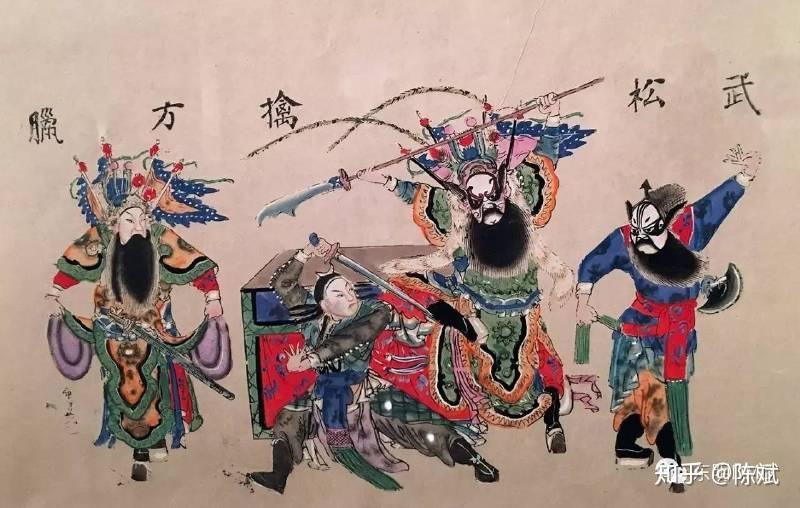 武松擒方臘
知乎 @陈斌